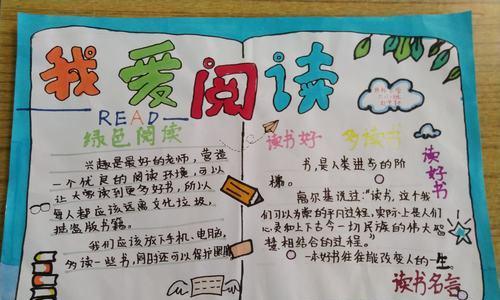 我爱阅读
READ
绿色阅读
兴趣是最好的老师，营造
一个优良的阅读环境，可以
让大家读到更多好书，所以
每人都应该远离文化垃圾，
抵盗版书籍。
我们应该放下手机、电脑，
多读一些书，同时还可以保护眼睛
读书好
多读书
读好书
书，是人类进步的阶
梯。
高尔基说过：“读书，这个我
们可以为常的平凡过程，实际上是人们
心灵和上下古今一切民族的伟大智
慧相结合的过程。”
一本好书往往能改变人的一生。
读书名言